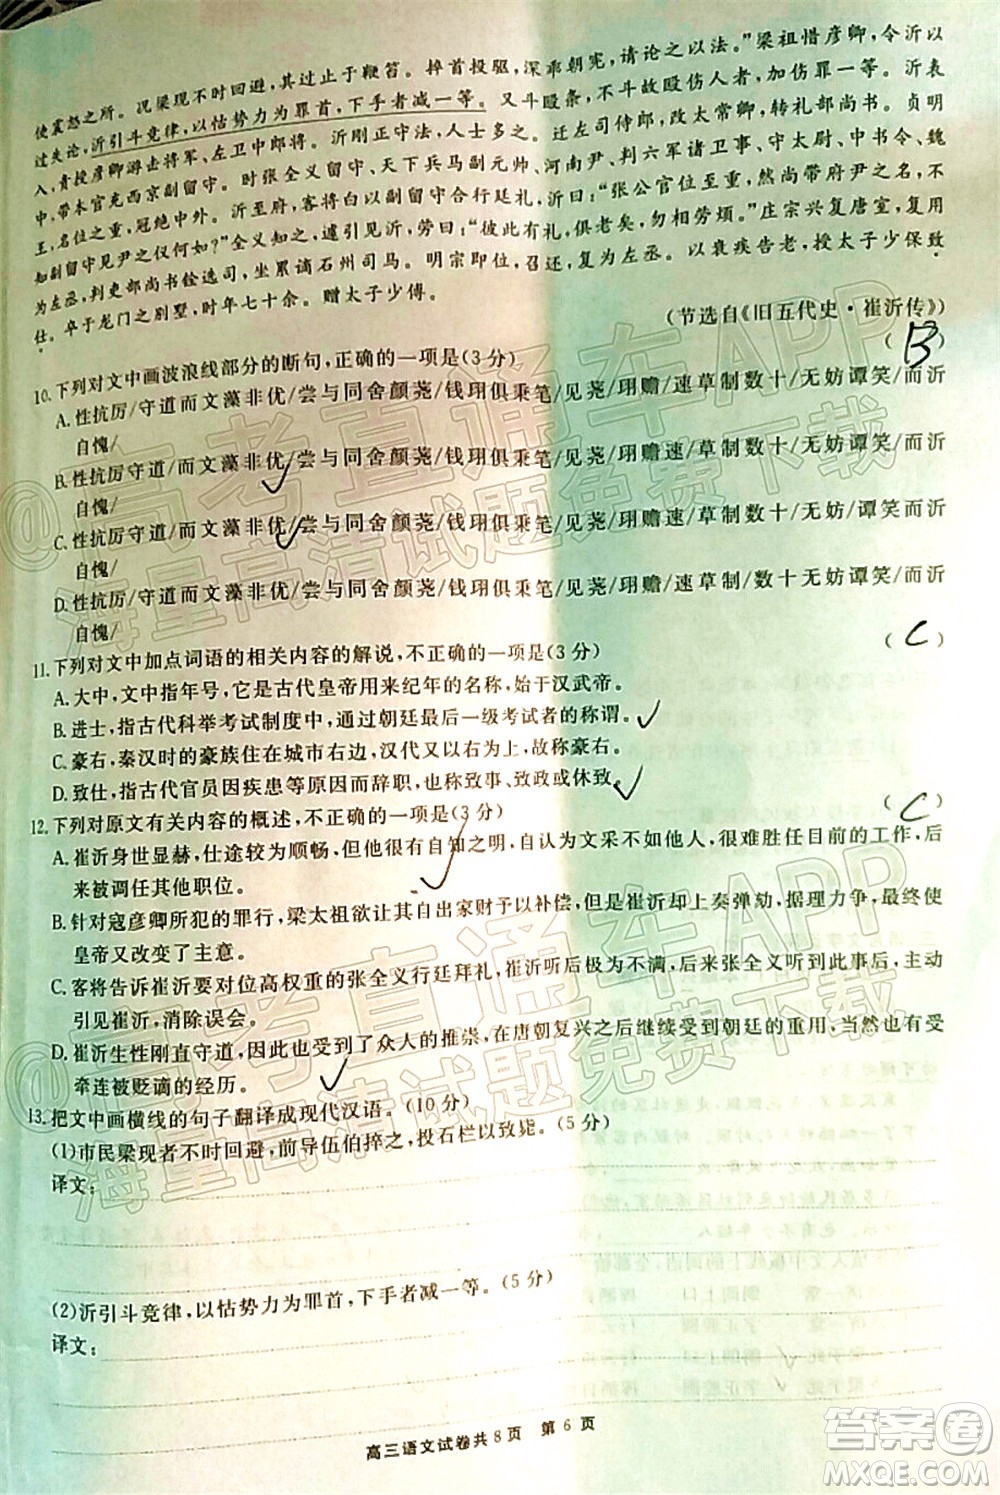 使震怒之所。况梁现不时回避，其过止于鞭笞。捽首投躯，深乖朝宪，请论之以法。”梁祖惜彦卿，令沂以
过失论，沂引斗竞律，以怙势力为罪首，下手者减一等。又斗殴条，不斗故殴伤人者，加伤罪一等。沂表
入，责授彦卿游击将军、左卫中郎将。沂刚正守法，人士多之。迁左司侍郎，改太常卿，转礼部尚书。贞明
中，带本官充西京副留守。时张全义留守、天下兵马副元帅、河南尹、判六军诸卫事、守太尉、中书令、魏
王，名位之重，冠绝中外。沂至府，客将白以副留守合行廷礼，沂曰：“张公官位至重，然尚带府尹之名，不
知副留守见尹之仪何如？”全义知之，遽引见沂，劳曰：“彼此有礼，俱老矣，勿相劳烦。”庄宗兴复唐室，复
为左丞，判吏部尚书铨选司，坐累谪石州司马。明宗即位，召还，复为左丞。以衰疾告老，授太子少保致
仕。卒于龙门之别墅，时年七十余。赠太子少傅。
（节选自《旧五代史·崔沂传》）
10.下列对文中画波浪线部分的断句，正确的一项是（3分） （ B ）
A.性抗厉/守道而文藻非优/尝与同舍颜荛/钱珝俱秉笔/见荛/珝赡/速草制数十/无妨谭笑/而沂
自愧/
B.性抗厉守道/而文藻非优/尝与同舍颜荛/钱珝俱秉笔/见荛/珝赡速/草制数十/无妨谭笑/而沂
自愧/
C.性抗厉守道/而文藻非优/尝与同舍颜荛/钱珝俱秉笔/见荛/珝赡速/草制数十/无妨/谭笑而沂
自愧/
D.性抗厉/守道而文藻非优/尝与同舍颜荛/钱珝俱秉笔/见荛/珝赡/速草制/数十无妨谭笑/而沂
自愧/
11.下列对文中加点词语的相关内容的解说，不正确的一项是（3分） （ C ）
A.大中，文中指年号，它是古代皇帝用来纪年的名称，始于汉武帝。
B.进士，指古代科举考试制度中，通过朝廷最后一级考试者的称谓。
C.豪右，秦汉时的豪族住在城市右边，汉代又以右为上，故称豪右。
D.致仕，指古代官员因疾患等原因而辞职，也称致事、致政或休致。
12.下列对原文有关内容的概述，不正确的一项是（3分） （ C ）
A.崔沂身世显赫，仕途较为顺畅，但他颇有自知之明，自认为文采不如他人，很难胜任目前的工作，后
来被调任其他职位。
B.针对寇彦卿所犯的罪行，梁太祖欲让其自出家财予以补偿，而崔沂却上奏弹劾，据理力争，最终使
皇帝又改变了主意。
C.客将告诉崔沂要对位高权重的张全义行廷拜礼，崔沂听后极为不满，后来张全义听到此事后，主动
引见崔沂，消除误会。
D.崔沂生性刚直守道，因此也受到了众人的推崇，在唐朝复兴之后继续受到朝廷的重用，当然也有受
牵连被贬谪的经历。
13.把文中画横线的句子翻译成现代汉语。（10分）
(1)市民梁现者不时回避，前导伍伯捽之，投石栏以致毙。（5分）
译文：
(2)沂引斗竞律，以怙势力为罪首，下手者减一等。（5分）
译文：
高三语文试卷共8页 第6页
@高考直通车APP
海量高清试题免费下载
@高考直通车APP
海量高清试题免费下载
答案圈
MXQE.COM